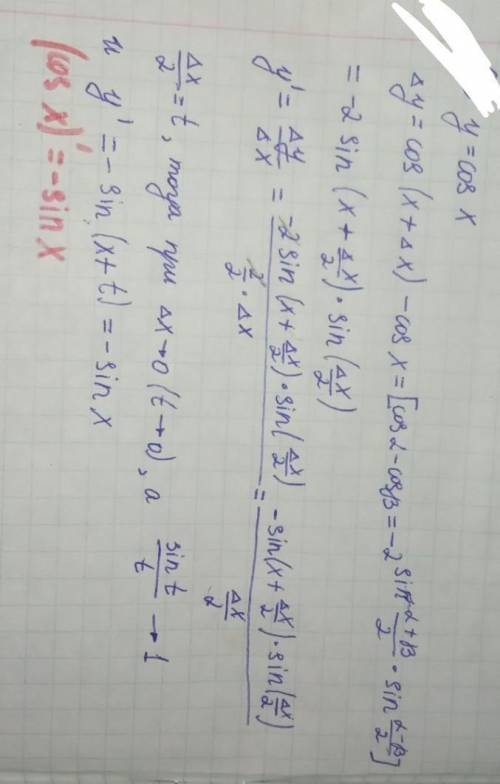 y = cos x
Δy = cos (x + Δx) - cos x = [cos α - cos β = -2 sin (α+β)/2 · sin (α-β)/2]
= -2 sin (x + Δx/2) · sin (Δx/2)
y' = Δy/Δx = (-2 sin (x + Δx/2) · sin (Δx/2))/(2/2 · Δx) = (-sin (x + Δx/2) · sin (Δx/2))/(Δx/2)
Δx/2 = t, тогда при Δx→0 (t→0), а sin t/t → 1
и y' = - sin (x + t) = - sin x
(cos x)' = - sin x